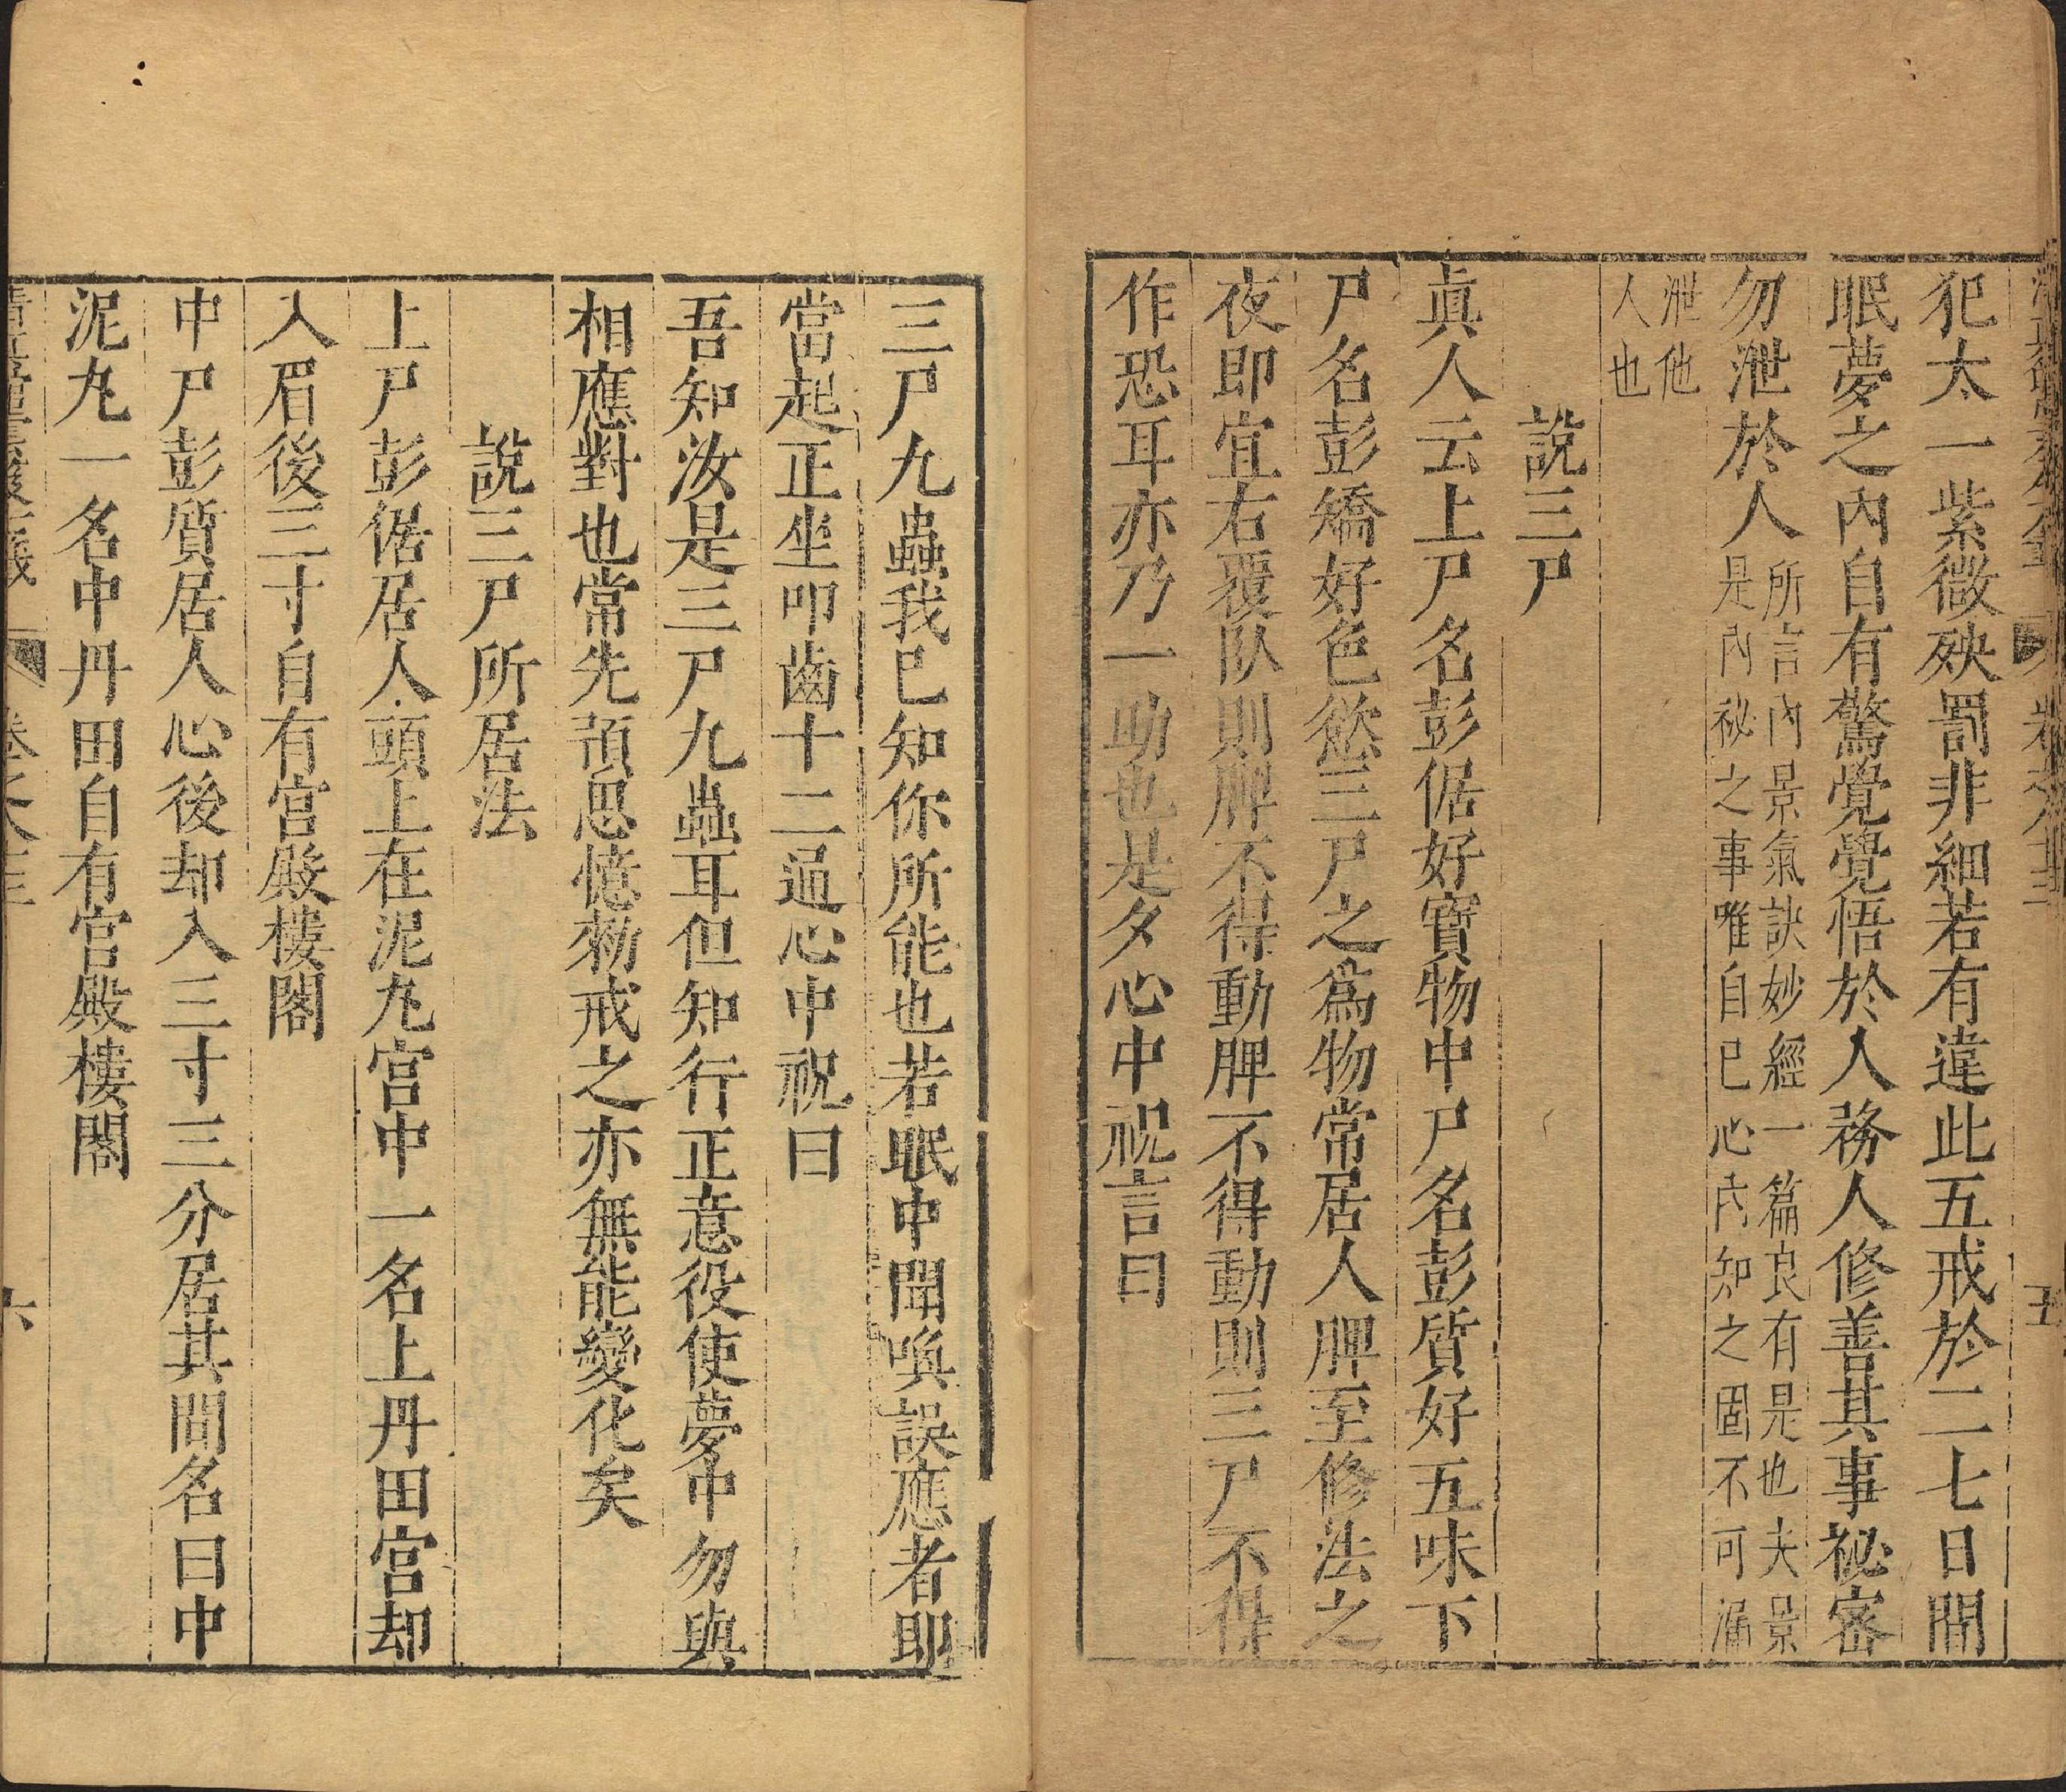 犯太一紫微殃罰非細若有違此五戒於二七日間
眠夢之內自有驚覺覺悟於人務人修善其事祕密
勿泄於人所言內景氣訣妙經一篇良有是也夫景
是內祕之事唯自已心內知之固不可漏
泄他
人也
說三尸
眞人云上尸名彭倨好寶物中尸名彭質好五味下
尸名彭矯好色慾三尸之爲物常居人脾至修法之
夜即宜右覆臥則脾不得動脾不得動則三尸不得
作恐耳亦乃一助也是夕心中祝言曰
五
三尸九蟲我已知你所能也若眠中聞喚誤應者即
當起正坐叩齒十二通心中祝曰
吾知汝是三尸九蟲耳但知行正意役使夢中勿與
相應對也常先預思憶勑戒之亦無能變化矣
說三尸所居法
上尸彭倨居人頭上在泥丸宮中一名上丹田宮却
入眉後三寸自有宮殿樓閣
中尸彭質居人心後却入三寸三分居其間名曰中
泥丸一名中丹田自有宮殿樓閣
六